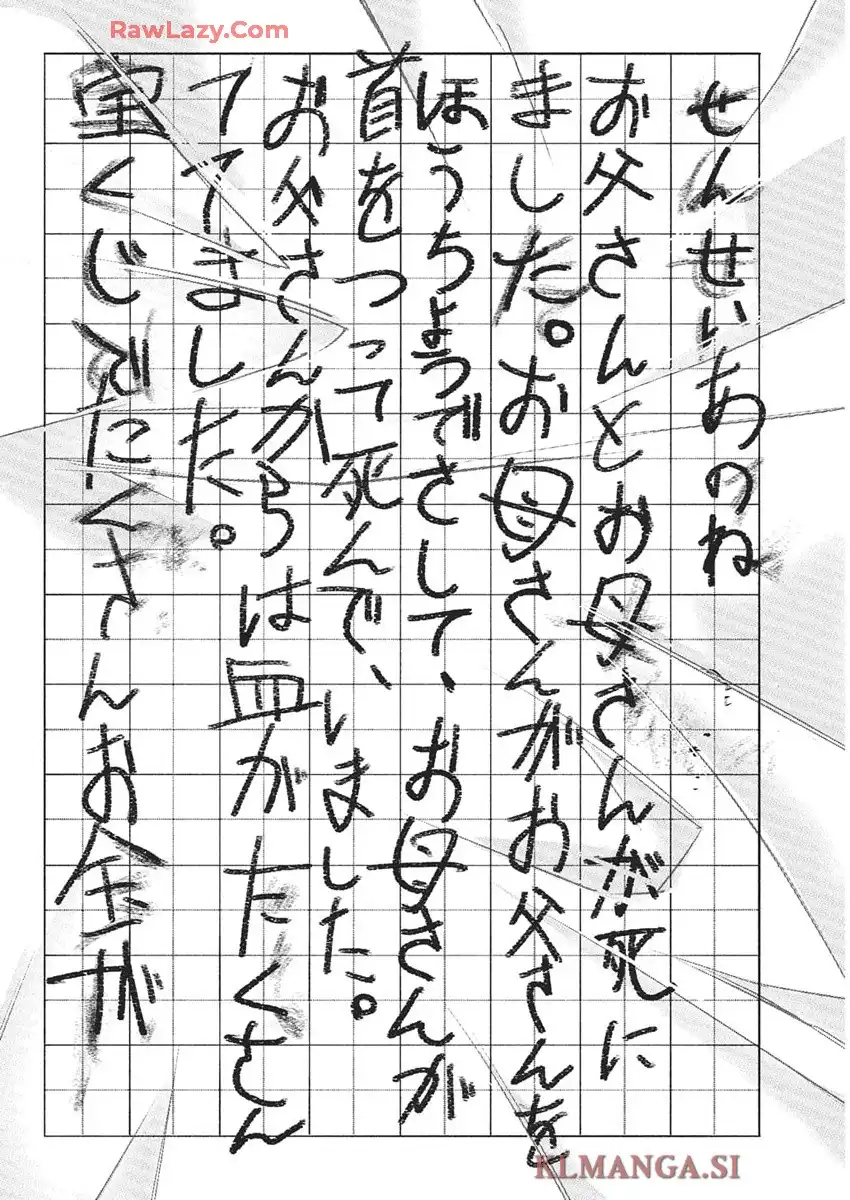 RawLazy.Com
せんせいあのね
お父さんとお母さんが死に
ました。お母さんがお父さんを
ほうちょうでさして、お母さんが
首をつって死んで、いました。
お父さんからは血がたくさん
ててきました。
宝くじでたくさんお金が
KLMANGA.SI